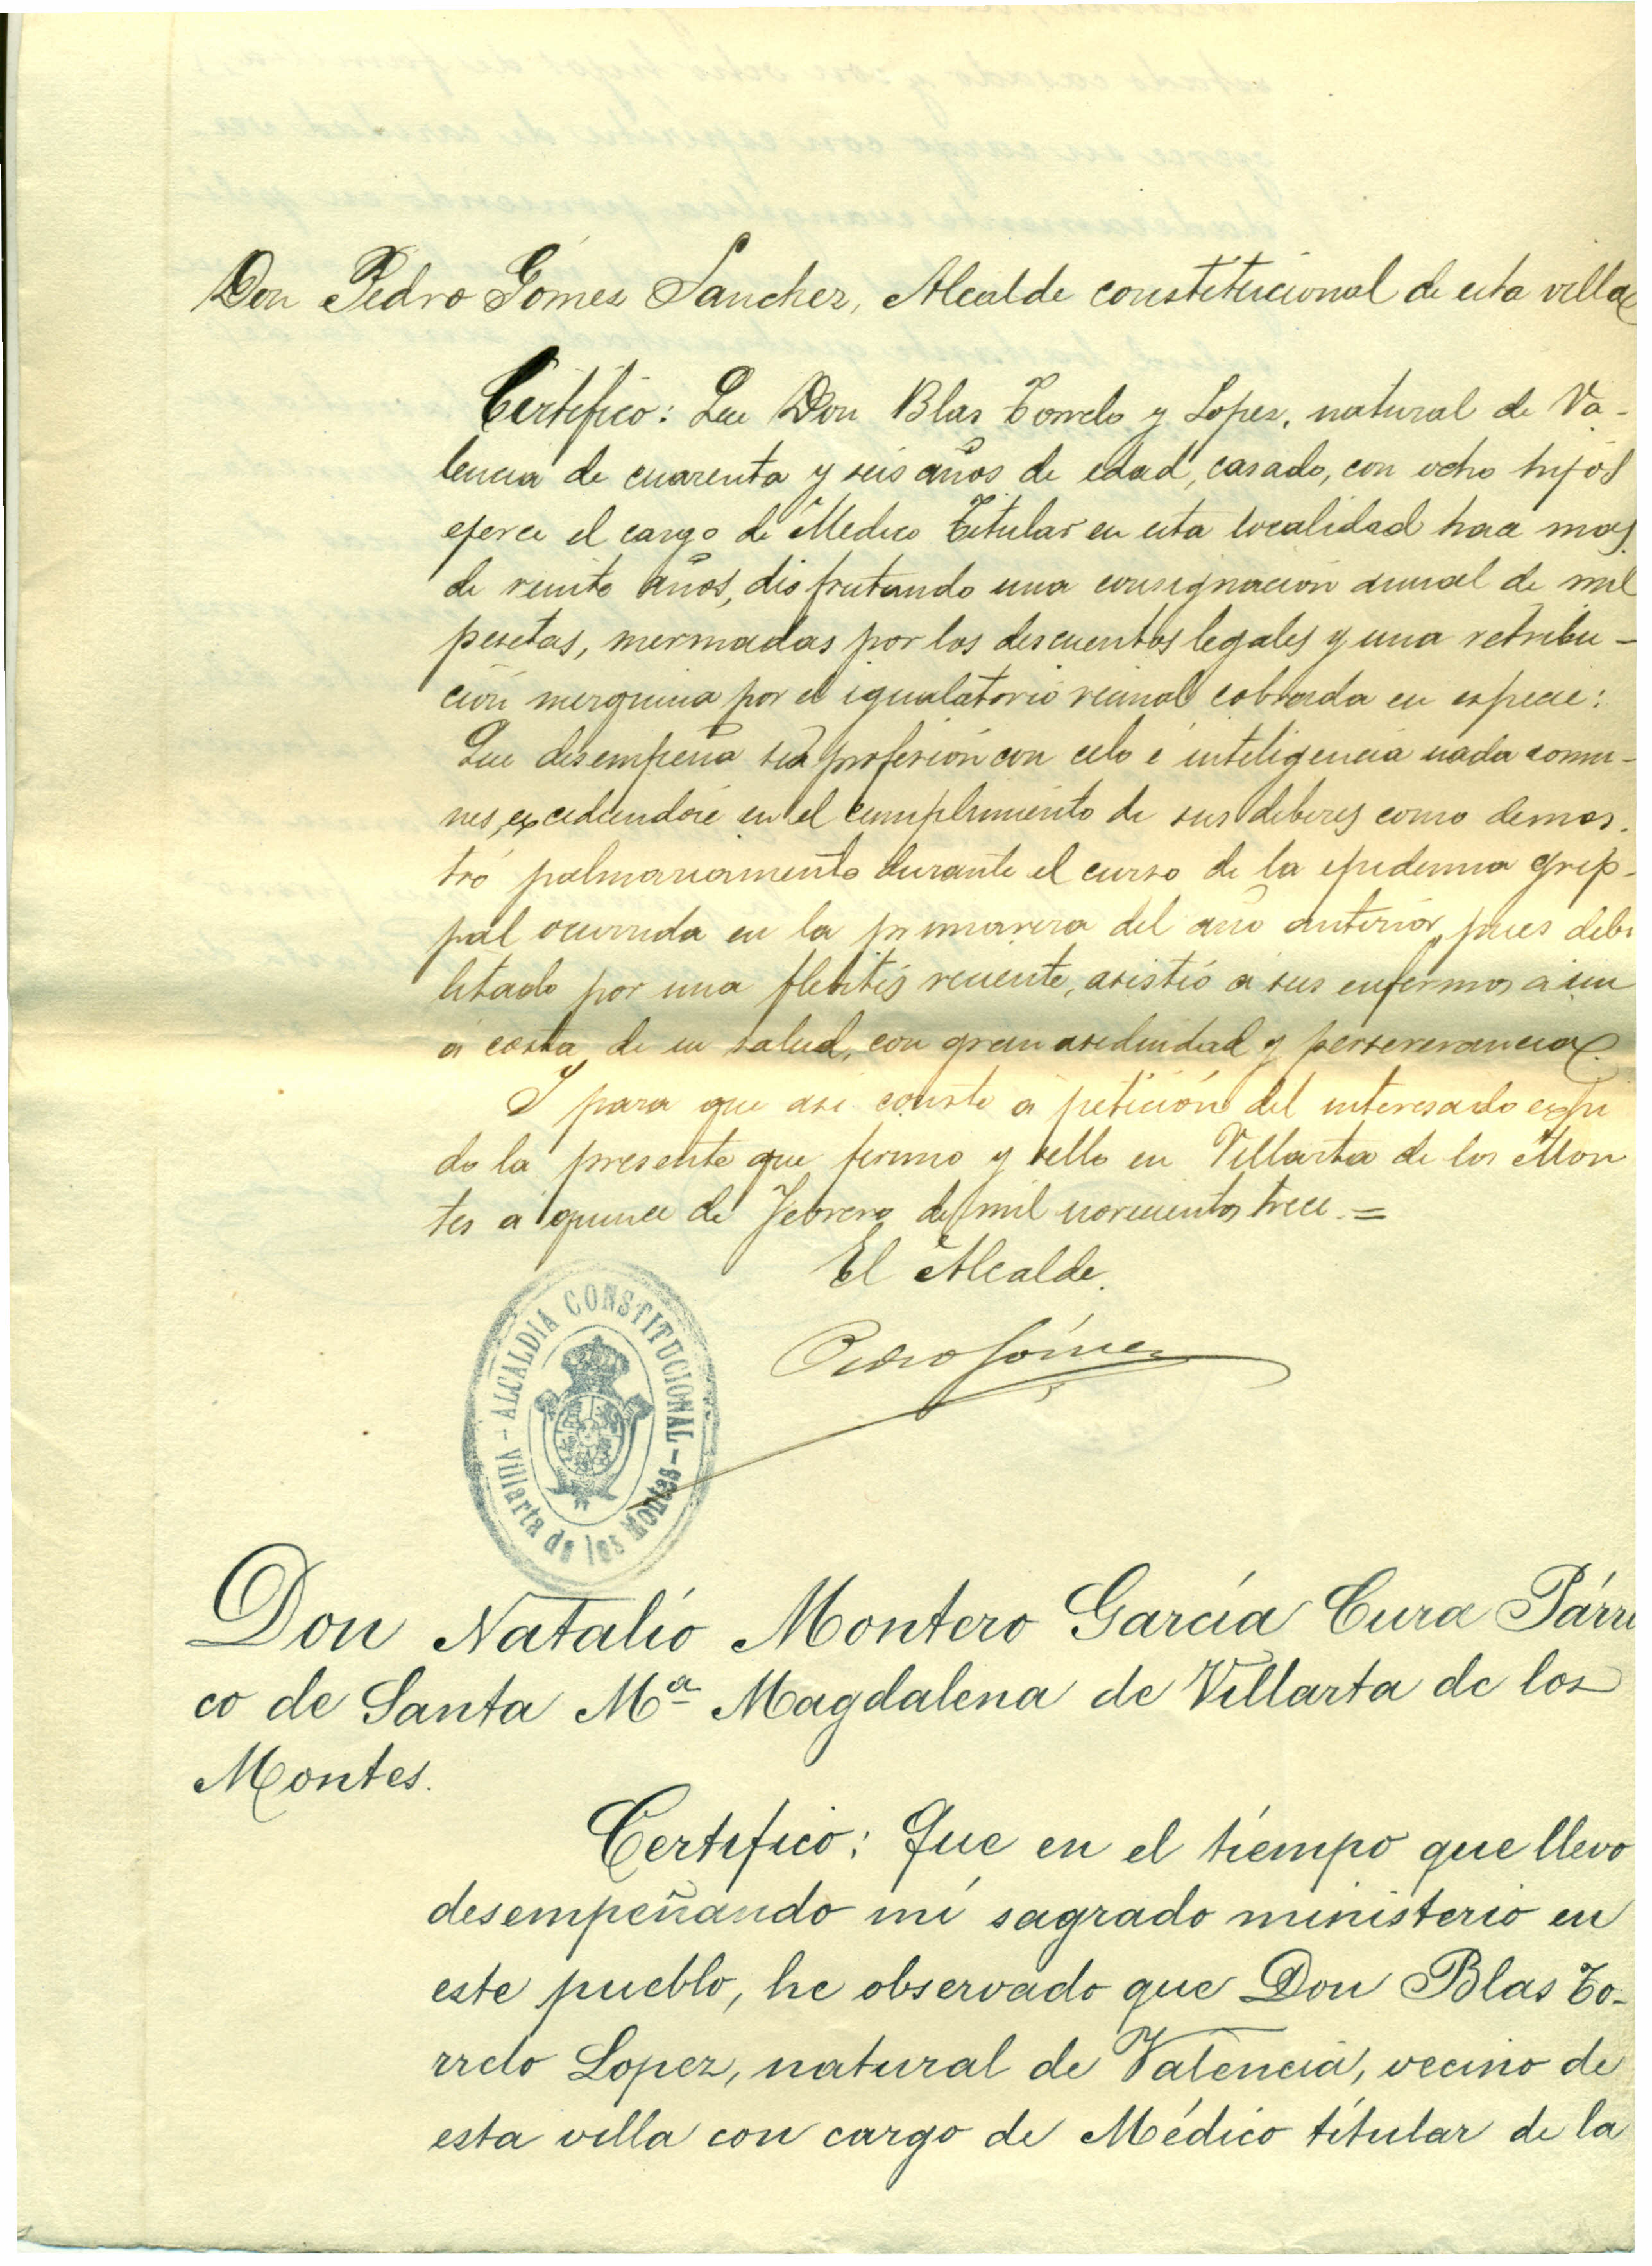 Don Pedro Gómez Sanchez, Alcalde constitucional de esta villa
Certifico: Que Don Blas Torrelo y Lopez, natural de Va-
lencia de cuarenta y seis años de edad, casado, con ocho hijos
ejerce el cargo de Medico Titular en esta localidad hace mas
de veinte años, disfrutando una consignación anual de mil
pesetas, mermadas por los descuentos legales y una retribu-
ción mezquina por el igualatorio vecinal cobrada en especie:
Que desempeña su profesión con celo é inteligencia nada comu-
nes, excediendose en el cumplimiento de sus deberes como demos-
tró palmariamente durante el curso de la epidemia grip-
pal ocurrida en la primavera del año anterior, pues debi
litado por una flebitis reciente, asistió á sus enfermos aun
á costa de su salud, con gran asiduidad y perseverancia.
Y para que asi conste á petición del interesado expi
do la presente que firmo y sello en Villarta de los Mon
tes á quince de Febrero de mil novecientos trece.=
El Alcalde.
Pedro Gómez
ALCALDIA CONSTITUCIONAL
Villarta de los Montes
Don Natalio Montero García Cura Párro
co de Santa Mª Magdalena de Villarta de los
Montes.
Certifico: Que en el tiempo que llevo
desempeñando mi sagrado ministerio en
este pueblo, he observado que Don Blas To-
rrelo Lopez, natural de Valencia, vecino de
esta villa con cargo de Médico titular de la